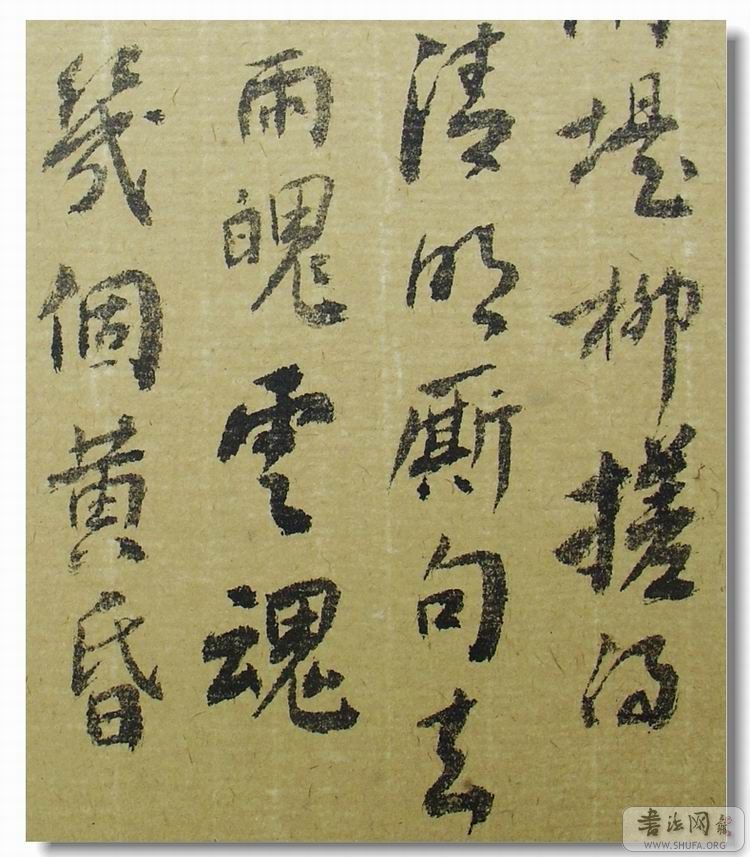 堤柳搓得
清明厮句去
雨魄雲魂
幾個黄昏
書法网
WWW.SHUFA.ORG